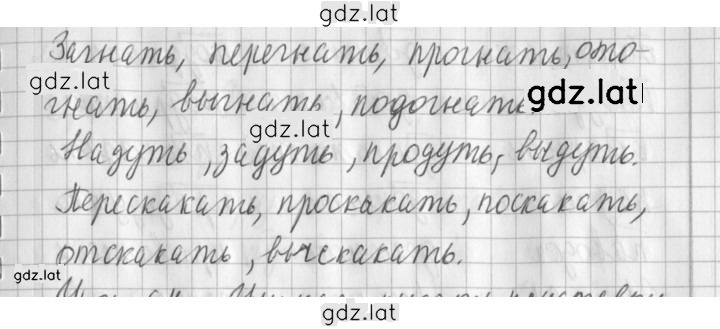 gdz.lat
Загнать, перегнать, прогнать, ото-
gdz.lat
гнать, выгнать, подогнать
gdz.lat
gdz.lat
Надуть, задуть, продуть, выдуть.
Перескакать, проскакать, поскакать,
отскакать, выскакать.
gdz.lat
gdz.lat